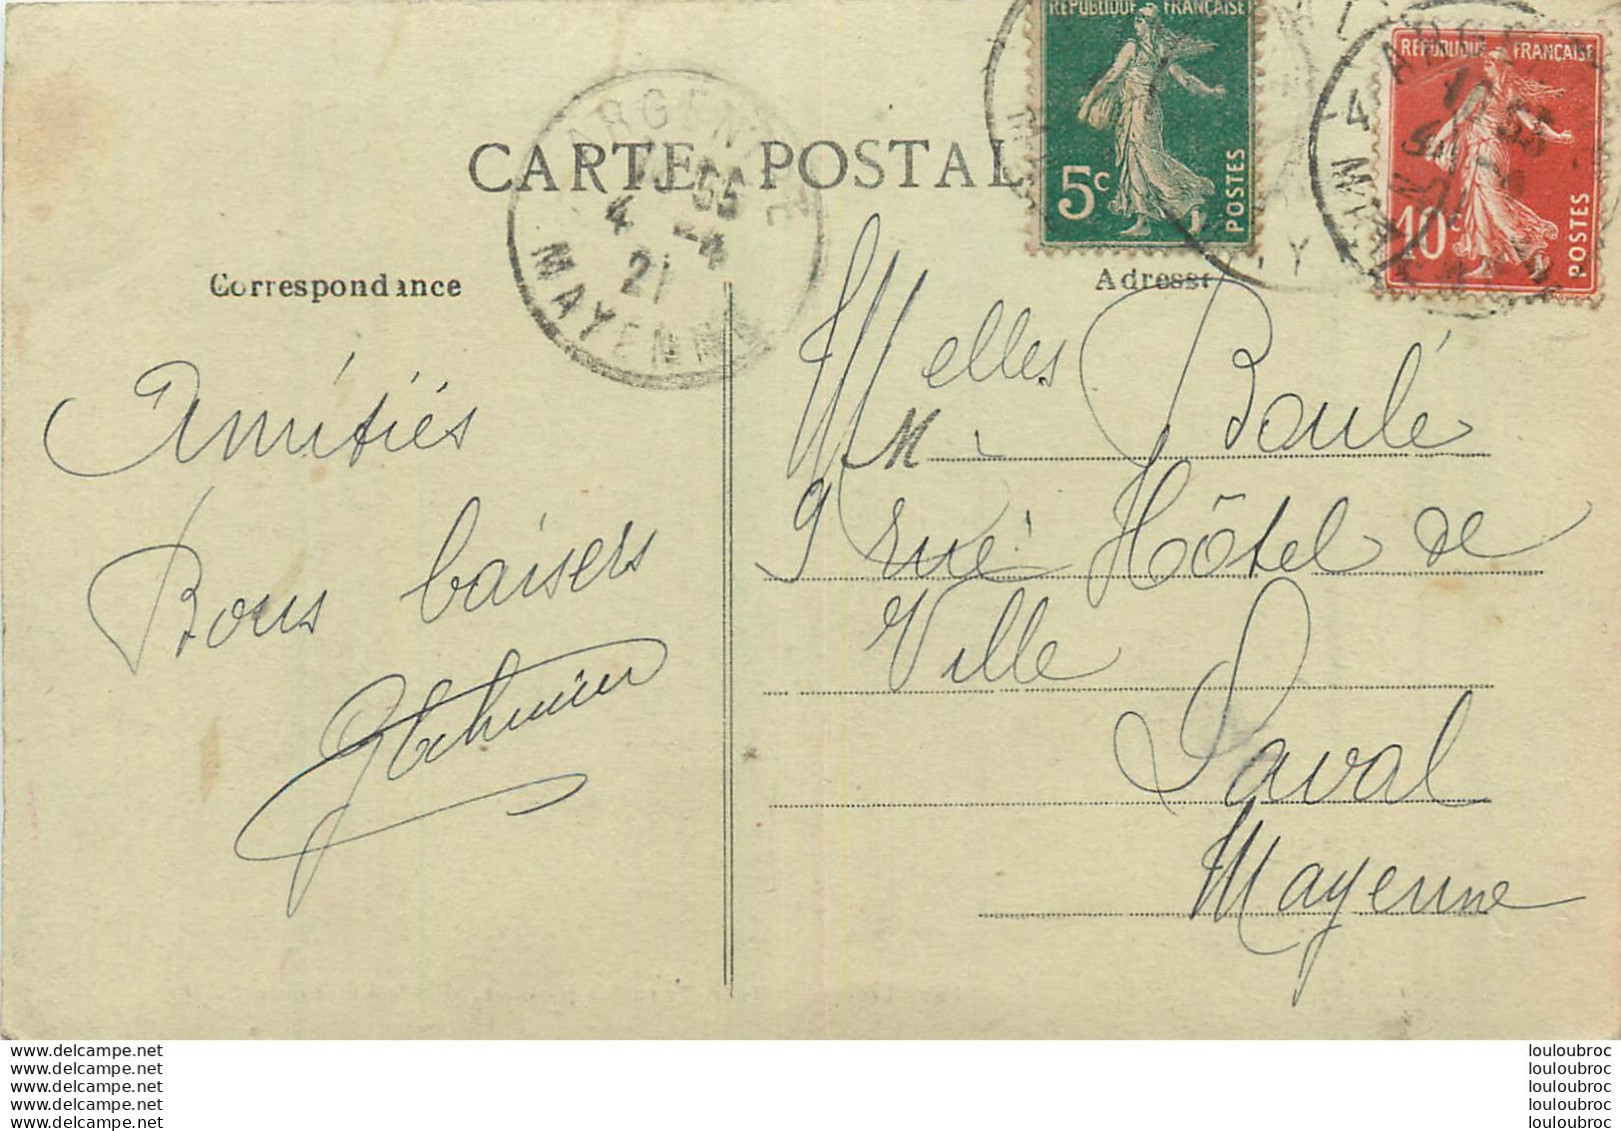 CARTE POSTALE
RÉPUBLIQUE FRANÇAISE
5c
POSTES
RÉPUBLIQUE FRANÇAISE
10c
POSTES
4
21
MAYENNE
Correspondance
Adresse
Amitiés
Bons baisers
Melles Boulé
M
9 rue Hôtel de
Ville
Laval
Mayenne
www.delcampe.net
www.delcampe.net
www.delcampe.net
www.delcampe.net
www.delcampe.net
louloubroc
louloubroc
louloubroc
louloubroc
louloubroc